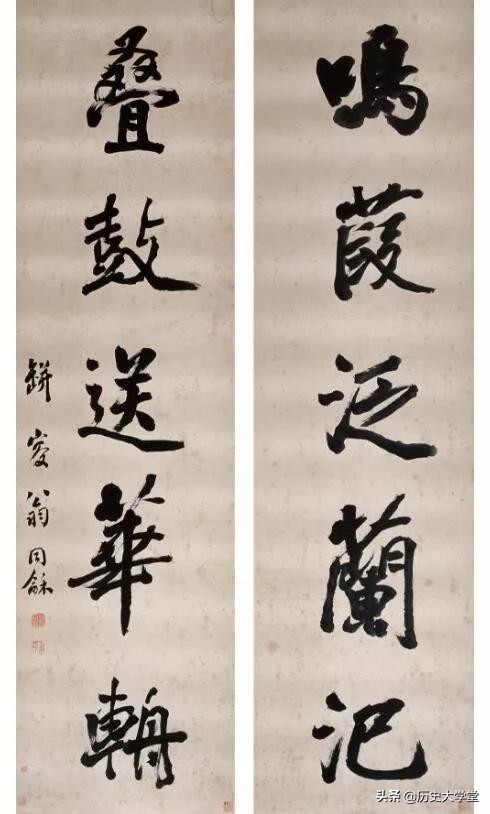 鳴葭泛蘭汜
叠鼓送華輈
缾叟翁同龢
头条 @历史大学堂